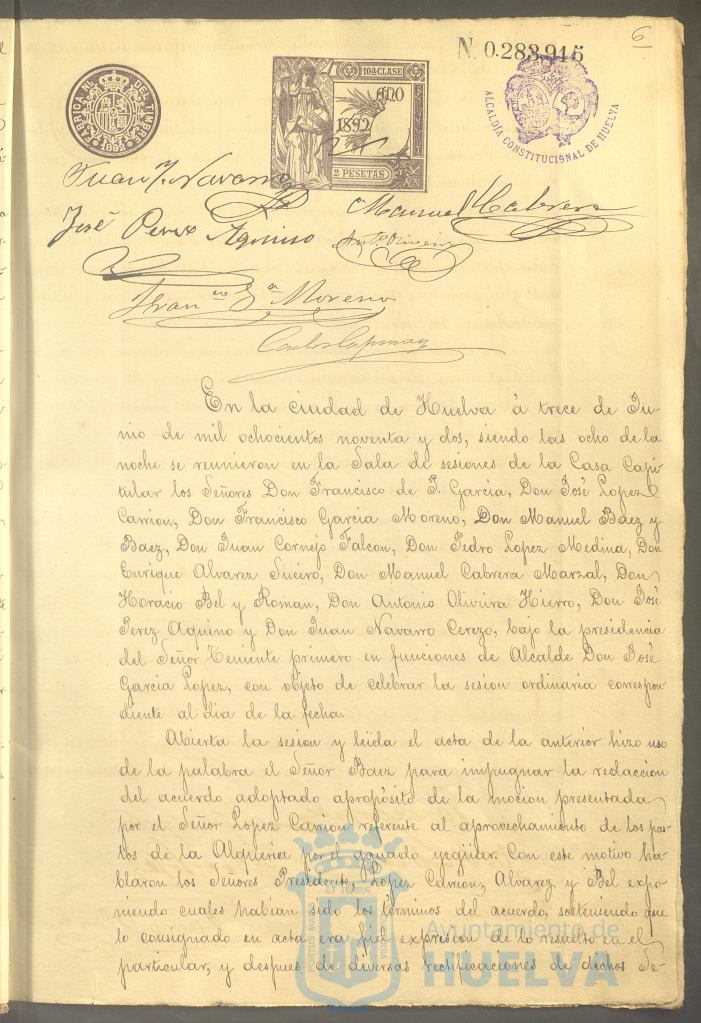 6
N. 0.283.915
FÁBRICA NL. DEL TIMBRE
1892
10ª CLASE
AÑO
1892
2 PESETAS
ALCALDÍA CONSTITUCIONAL DE HUELVA
Juan Navarro
Manuel Cabrera
José Perez Aquino
Antº Oliveira
Franco Gª Moreno
En la ciudad de Huelva á trece de Ju-
nio de mil ochocientos noventa y dos, siendo las ocho de la
noche se reunieron en la Sala de sesiones de la Casa Capi-
tular los Señores Don Francisco de P. Garcia, Don José Lopez
Carrion, Don Francisco Garcia Moreno, Don Manuel Baez y
Baez, Don Juan Cornejo Falcon, Don Pedro Lopez Medina, Don
Enrique Alvarez Sueiro, Don Manuel Cabrera Marzal, Don
Horacio Bel y Roman, Don Antonio Oliveira Hierro, Don José
Perez Aquino y Don Juan Navarro Cerezo, bajo la presidencia
del Señor Teniente primero en funciones de Alcalde Don José
Garcia Lopez, con objeto de celebrar la sesion ordinaria correspon-
diente al dia de la fecha.
Abierta la sesion y leida el acta de la anterior hizo uso
de la palabra el Señor Baez para impugnar la redaccion
del acuerdo adoptado apropósito de la mocion presentada
por el Señor Lopez Carrion referente al aprovechamiento de los pas-
tos de la Alqueria por el ganado yegüar. Con este motivo ha-
blaron los Señores Presidente, Lopez Carrion, Alvarez y Bel expo-
niendo cuales habian sido los términos del acuerdo, sosteniendo que
lo consignado en acta era fiel expresion de lo resuelto en el
particular, y despues de diversas rectificaciones de dichos Se-
PORTUS MARIS ET TERRAE CUSTODIA
Ayuntamiento de
HUELVA